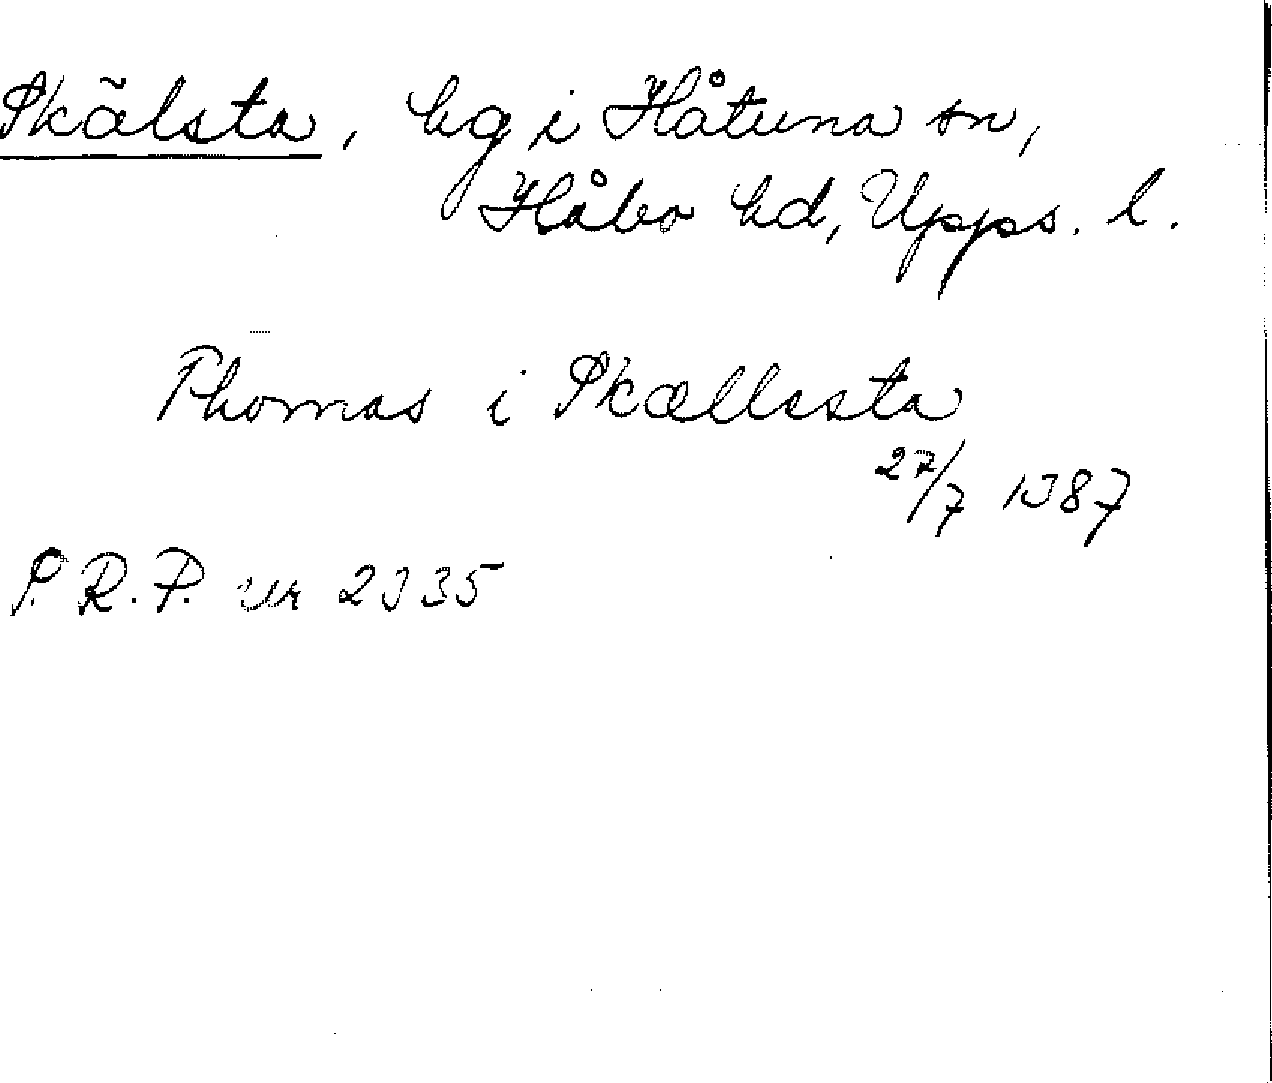 Skälsta, by i Håtuna sn,
Håbo hd, Upps. l.
Thomas i Skællssta
27/7 1387
S.R.P. nr 2335